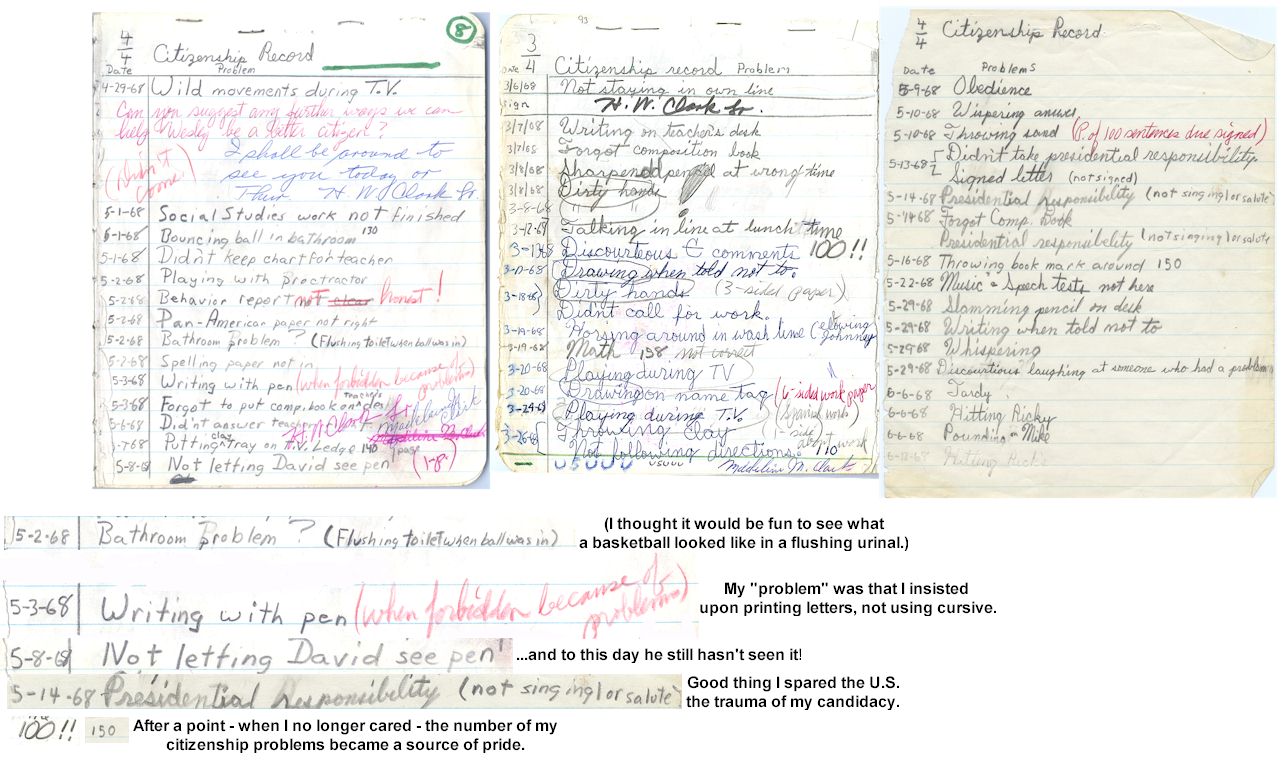 8
4/4 Citizenship Record
Date Problem
4-29-68 Wild movements during T.V.
Can you suggest any further ways we can
help Wesley be a better citizen?
(Didn't come)
I shall be around to
see you today or
Thur. H. W. Clark Sr.
5-1-68 Social Studies work not finished
5-1-68 Bouncing ball in bathroom 130
5-1-68 Didn't keep chart for teacher
5-2-68 Playing with proctractor
5-2-68 Behavior report not clear honest!
5-2-68 Pan-American paper not right
5-2-68 Bathroom problem? (Flushing toilet when ball was in)
5-2-68 Spelling paper not in
5-3-68 Writing with pen (when forbidden because of problems)
5-3-68 Forgot to put comp. book on teacher's des
5-6-68 Didn't answer
5-7-68 Putting clay tray on A.V. Ledge 140 1 page
5-8-68 Not letting David see pen (1-p.)
93
3/4 Citizenship record Problem
Date
3/6/68 Not staying in own line
Sign H. W. Clark Sr.
3/7/68 Writing on teacher's desk
3/7/68 Forgot composition book
3/8/68 Sharpened pencil at wrong time
3/8/68 Dirty hands
3-8-68 " "
3-12-69 Talking in line at lunch time
3-13-68 Discourteous & comments 100!!
Drawing when told not to.
3-18-68 Dirty hands (3-sided paper)
Didn't call for work.
3-19-68 Horsing around in wash time (elowing Johnney)
3-19-68 Math 158 not correct
3-20-68 Playing during TV
3-20-68 Drawing on name tag (6-sided work paper
Playing during T.V. (Signed work)
3-26-68 Throwing clay (1-side about work
Not following directions. 110
Madeline M. Clark
4/4 Citizenship Record
Date Problems
5-9-68 Obedience
5-10-68 Wispering answer
5-10-68 Throwing sand (P. of 100 sentences due signed)
5-13-68 Didn't take presidential responsibility
Signed letter (not signed)
5-14-68 Presidential responsibility (not singing) or salute
5-14-68 Forgot Comp. book
Presidential responsibility (not singing) or salute
5-16-68 Throwing book mark around 150
5-22-68 Music & Speech tests not here
5-29-68 Slamming pencil on desk
5-29-68 Writing when told not to
5-29-68 Whispering
5-29-68 Discourtious laughing at someone who had a problem
6-6-68 Tardy
6-6-68 Hitting Ricky
6-6-68 Pounding on Mike
6-12-68 Hitting Rick's
5-2-68 Bathroom problem? (Flushing toilet when ball was in)
(I thought it would be fun to see what
a basketball looked like in a flushing urinal.)
5-3-68 Writing with pen (when forbidden because of problems)
My "problem" was that I insisted
upon printing letters, not using cursive.
5-8-68 Not letting David see pen
...and to this day he still hasn't seen it!
5-14-68 Presidential responsibility (not singing) or salute
Good thing I spared the U.S.
the trauma of my candidacy.
100!! 150
After a point - when I no longer cared - the number of my
citizenship problems became a source of pride.